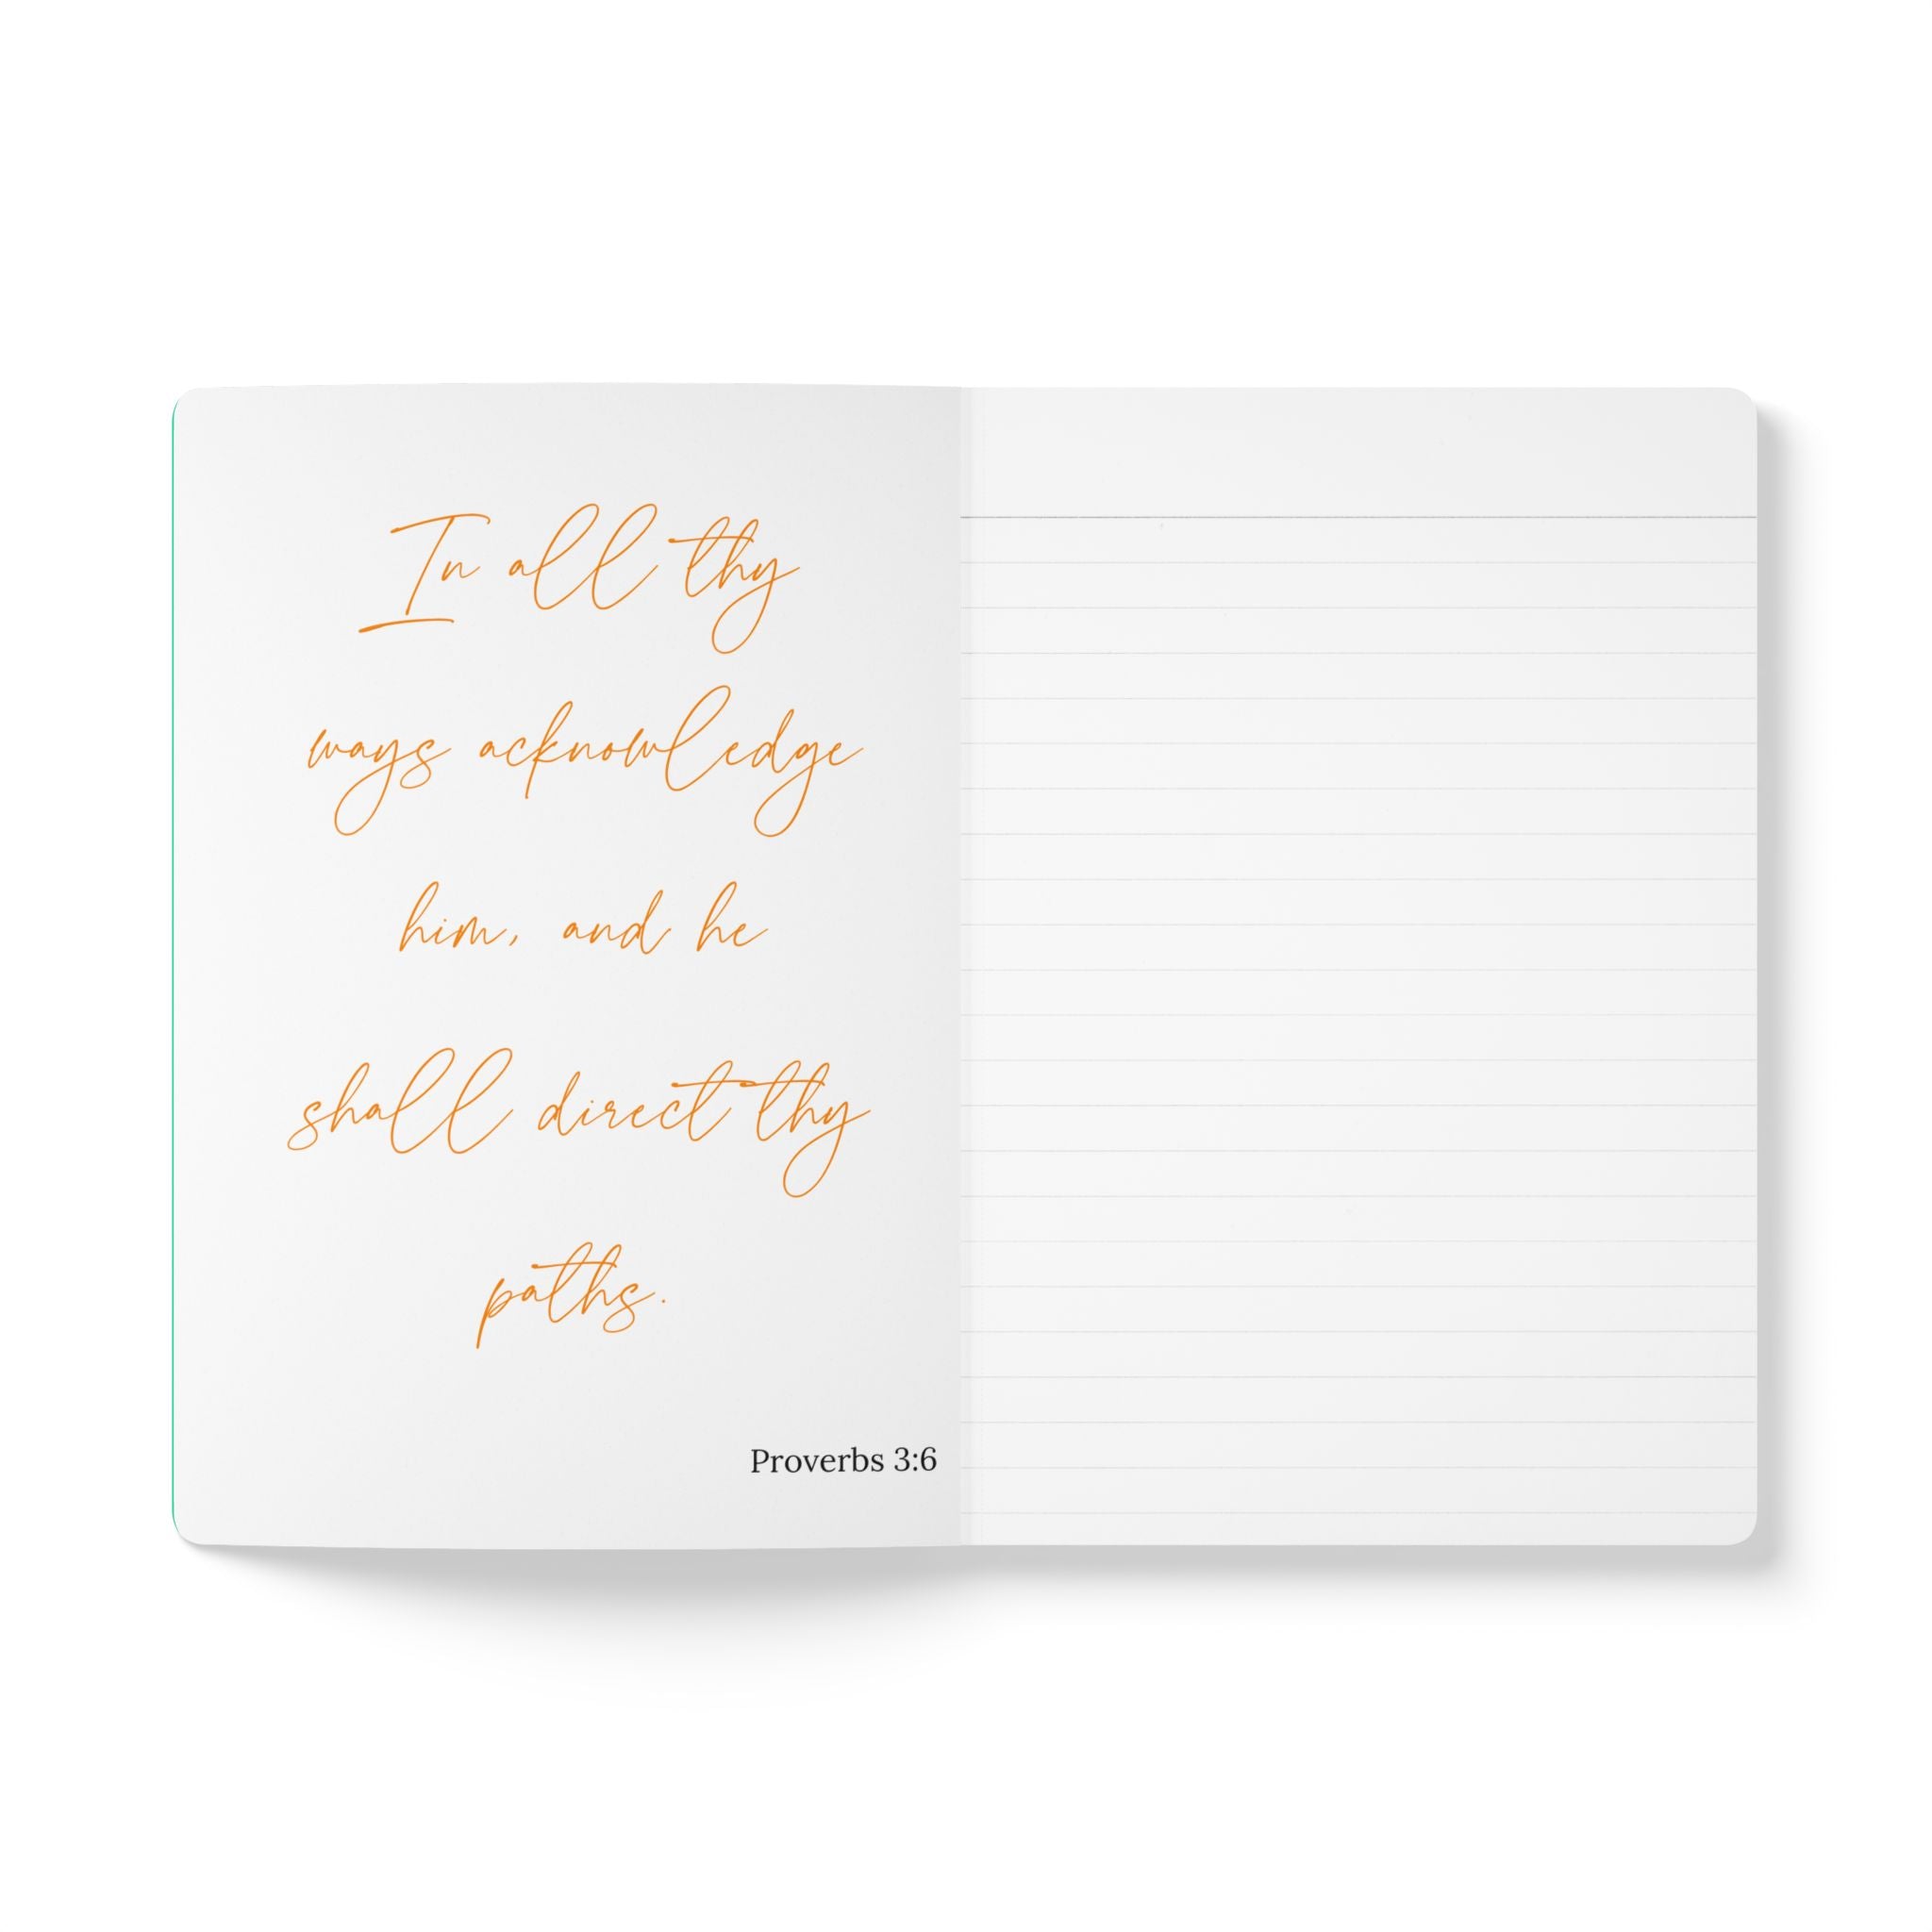 In all thy
ways acknowledge
him, and he
shall direct thy
paths.
Proverbs 3:6